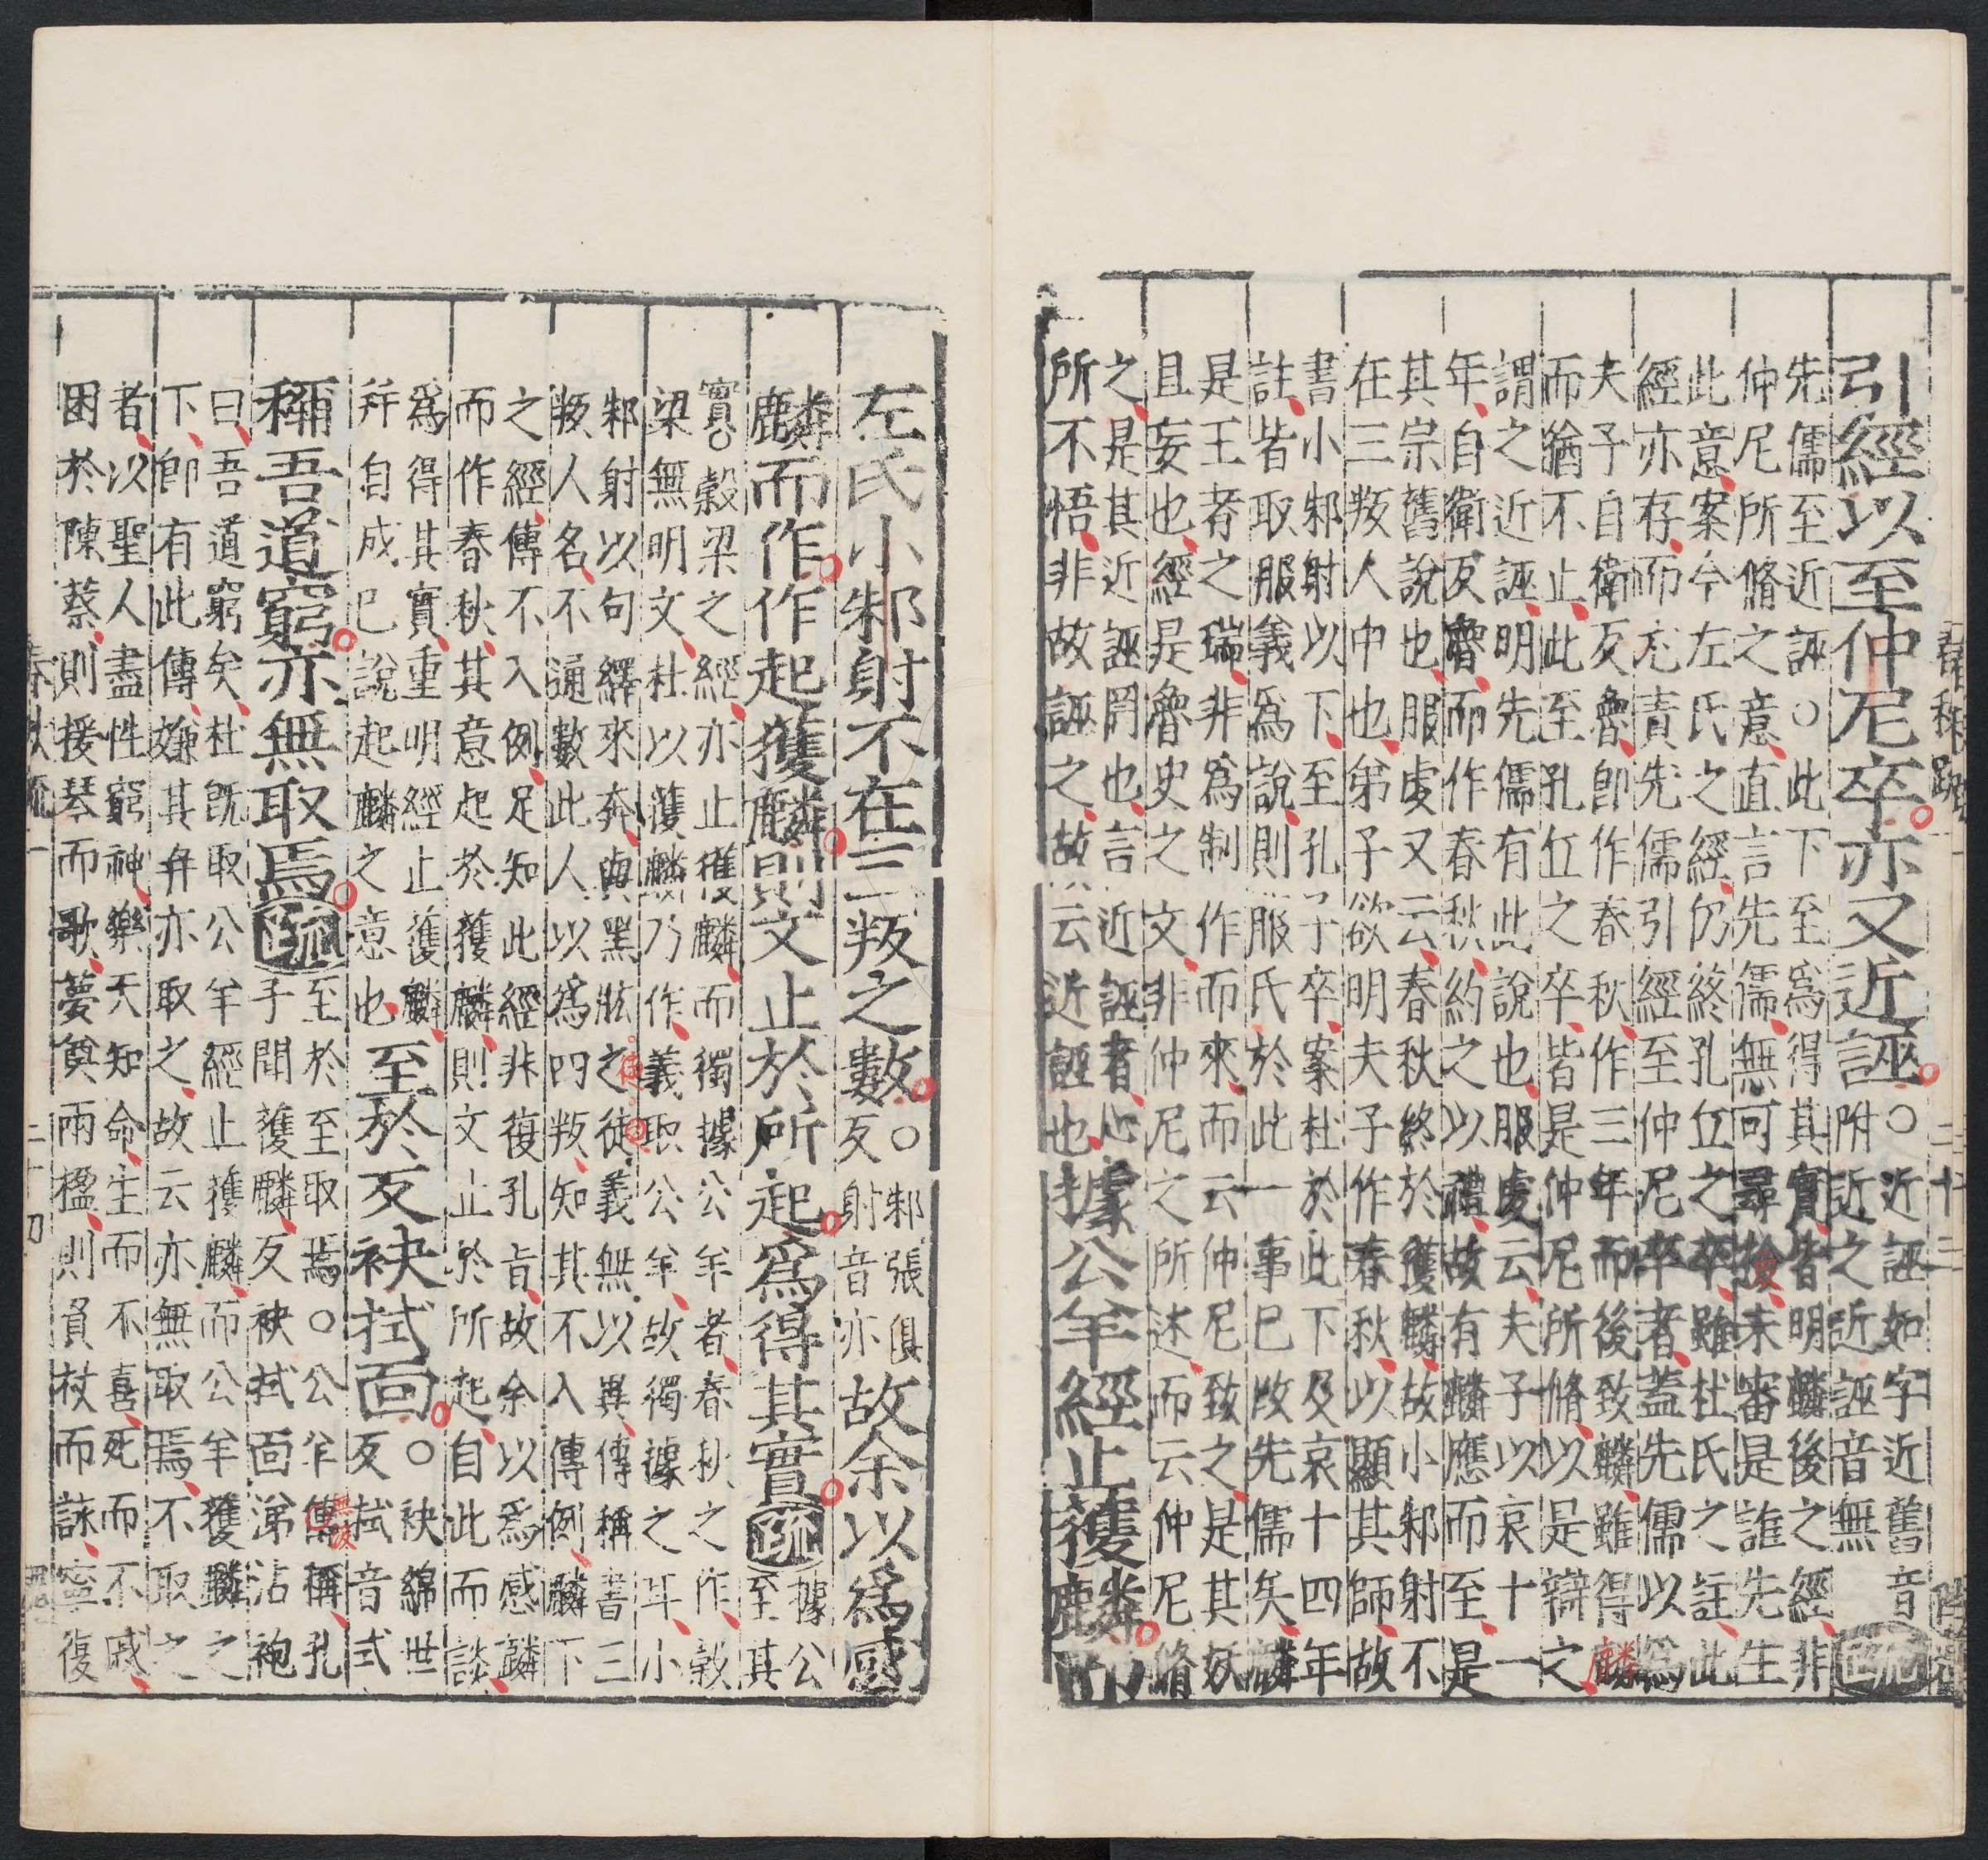 春秋疏一 二十二
引經以至仲尼卒亦又近誣○近誣如字近舊音
附近之近誣音無疏
先儒至近誣○此下至爲得其實皆明麟後之經非
仲尼所脩之意直言先儒無可尋檢未審是誰先生
此意案今左氏之經仍終孔丘之卒雖杜氏之註此
經亦存而尤責先儒引經至仲尼卒者蓋先儒以爲
夫子自衛反魯即作春秋作三年而後致麟雖得麟
而猶不止此至孔丘之卒皆是仲尼所脩以是辯之
謂之近誣明先儒有此說也服虔云夫子以哀十一
年自衛反魯而作春秋約之以禮故有麟應而至是
其宗舊說也服虔又云春秋終於獲麟故小邾射不
在三叛人中也弟子欲明夫子作春秋以顯其師故
書小邾射以下至孔子卒案杜於此下及哀十四年
註皆取服義爲說則服氏於此一事已改先儒矣麟
是王者之瑞非爲制作而來而云仲尼致之是其妖
且妄也經是魯史之文非仲尼之所述而云仲尼脩
之是其近誣罔也言近誣者心
所不悟非故誣之故云近誣也據公羊經止獲麟而
左氏小邾射不在三叛之數○邾張俱
反射音亦故余以爲感
麟而作作起獲麟則文止於所起爲得其實疏據公
至其
實○穀梁之經亦止獲麟而獨據公羊者春秋之作穀
梁無明文杜以獲麟乃作義取公羊故獨據之耳小
邾射以句繹來奔與黑肱之徒義無以異傳稱書三
叛人名不通數此人以爲四叛知其不入傳例麟下
之經傳不入例足知此經非復孔旨故余以爲感麟
而作春秋其意起於獲麟則文止於所起自此而談
爲得其實重明經止獲麟
幷自成已說起麟之意也至於反袂拭面○袂綿世
反拭音式
稱吾道窮亦無取焉疏至於至取焉○公羊傳稱孔
子聞獲麟反袂拭面涕沾袍
曰吾道窮矣杜既取公羊經止獲麟而公羊獲麟之
下即有此傳嫌其幷亦取之故云亦無取焉不取之
者以聖人盡性窮神樂天知命生而不喜死而不戚
困於陳蔡則援琴而歌夢奠兩楹則負杖而詠寧復
春秋疏一